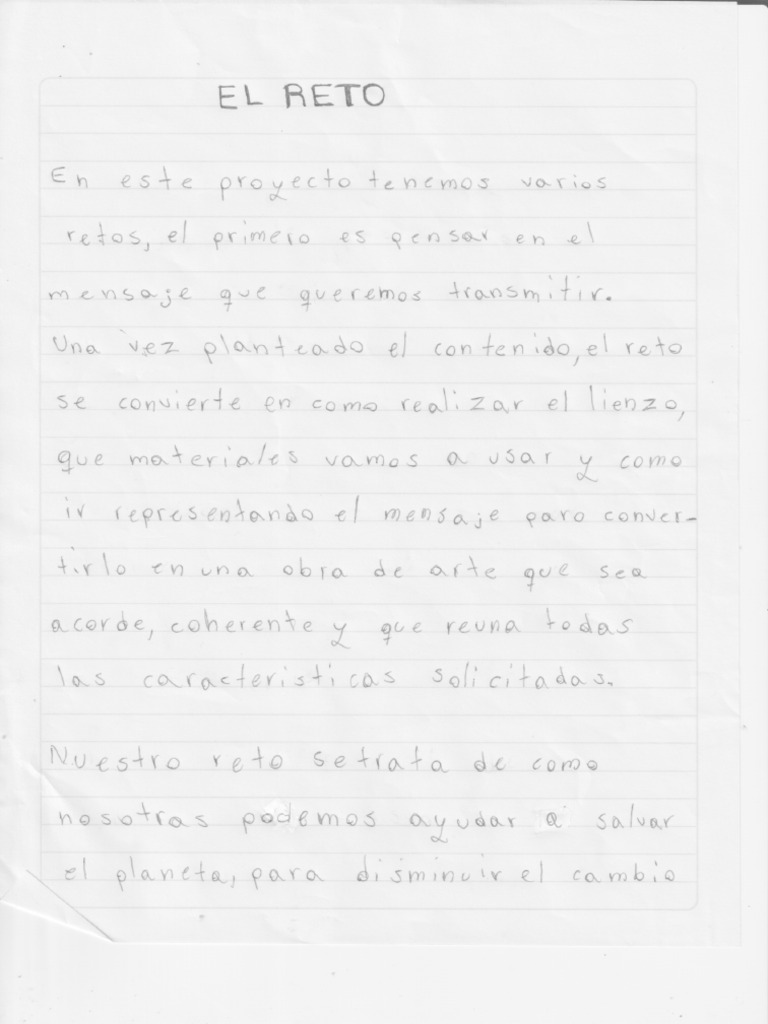 EL RETO
En este proyecto tenemos varios
retos, el primero es pensar en el
mensaje que queremos transmitir.
Una vez planteado el contenido, el reto
se convierte en como realizar el lienzo,
que materiales vamos a usar y como
ir representando el mensaje paro conver-
tirlo en una obra de arte que sea
acorde, coherente y que reuna todas
las caracteristicas solicitadas.
Nuestro reto se trata de como
nosotras podemos ayudar a salvar
el planeta, para disminuir el cambio